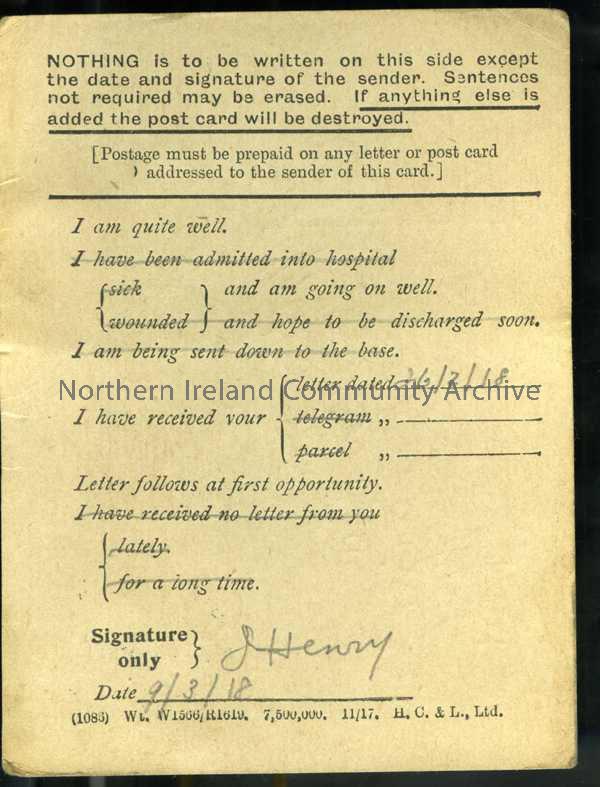 NOTHING is to be written on this side except
the date and signature of the sender. Sentences
not required may be erased. If anything else is
added the post card will be destroyed.
[Postage must be prepaid on any letter or post card
addressed to the sender of this card.]
I am quite well.
I have been admitted into hospital
sick and am going on well.
wounded and hope to be discharged soon.
I am being sent down to the base.
letter dated /2/18
Northern Ireland Community Archive
I have received your telegram „
parcel „
Letter follows at first opportunity.
I have received no letter from you
lately.
for a long time.
Signature only J Henry
Date 9/3/18
(1086) Wt. W1566/R1619. 7,500,000. 11/17. H. C. & L., Ltd.